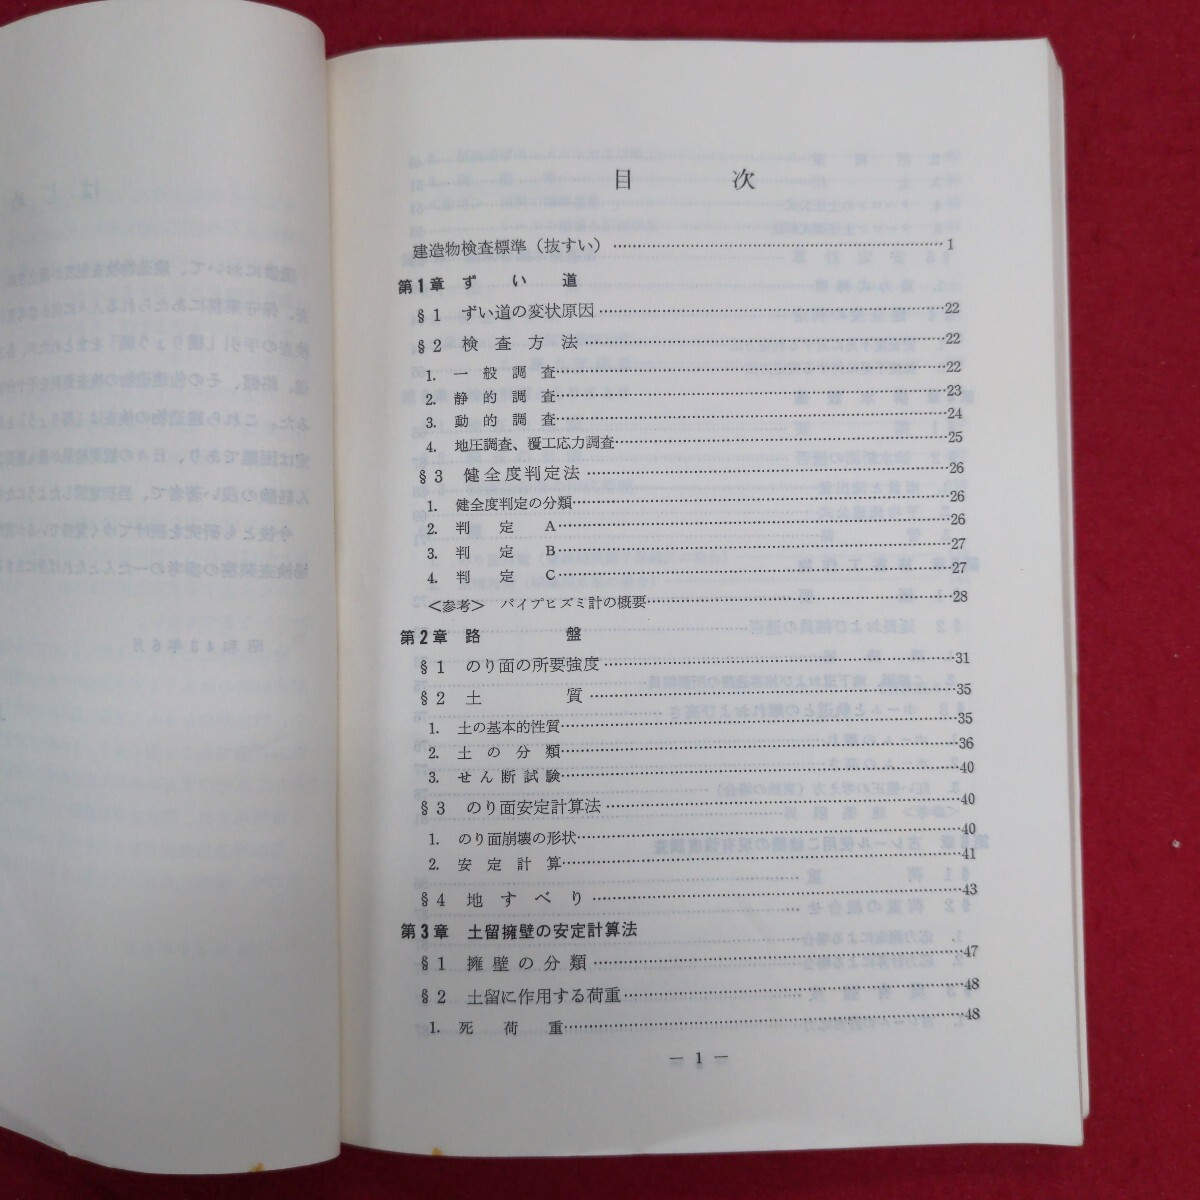 目 次
建造物検査標準(抜すい)……1
第1章 ずい道
§1 ずい道の変状原因……22
§2 検査方法……22
1. 一般調査……22
2. 静的調査……23
3. 動的調査……24
4. 地圧調査、覆工応力調査……25
§3 健全度判定法……26
1. 健全度判定の分類……26
2. 判定A……26
3. 判定B……27
4. 判定C……27
<参考> パイプヒズミ計の概要……28
第2章 路盤
§1 のり面の所要強度……31
§2 土質……35
1. 土の基本的性質……35
2. 土の分類……36
3. せん断試験……40
§3 のり面安定計算法……40
1. のり面崩壊の形状……40
2. 安定計算……41
§4 地すべり……43
第3章 土留擁壁の安定計算法
§1 擁壁の分類……47
§2 土留に作用する荷重……48
1. 死荷重……48
— 1 —